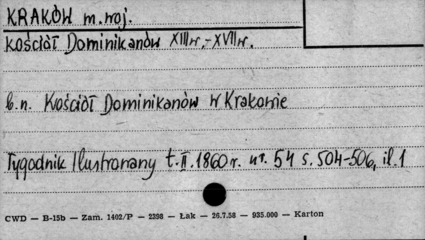 KRAKÓW m. woj.
Kościół Dominikanów XIII w. - XVII w.
b.n. Kościół Dominikanów w Krakowie
Tygodnik Ilustrowany t. II. 1860 r. nr. 54 s. 504-506, il. 1
CWD — B-15b — Zam. 1402/P — 2398 — Łak — 26.7.58 — 935.000 — Karton